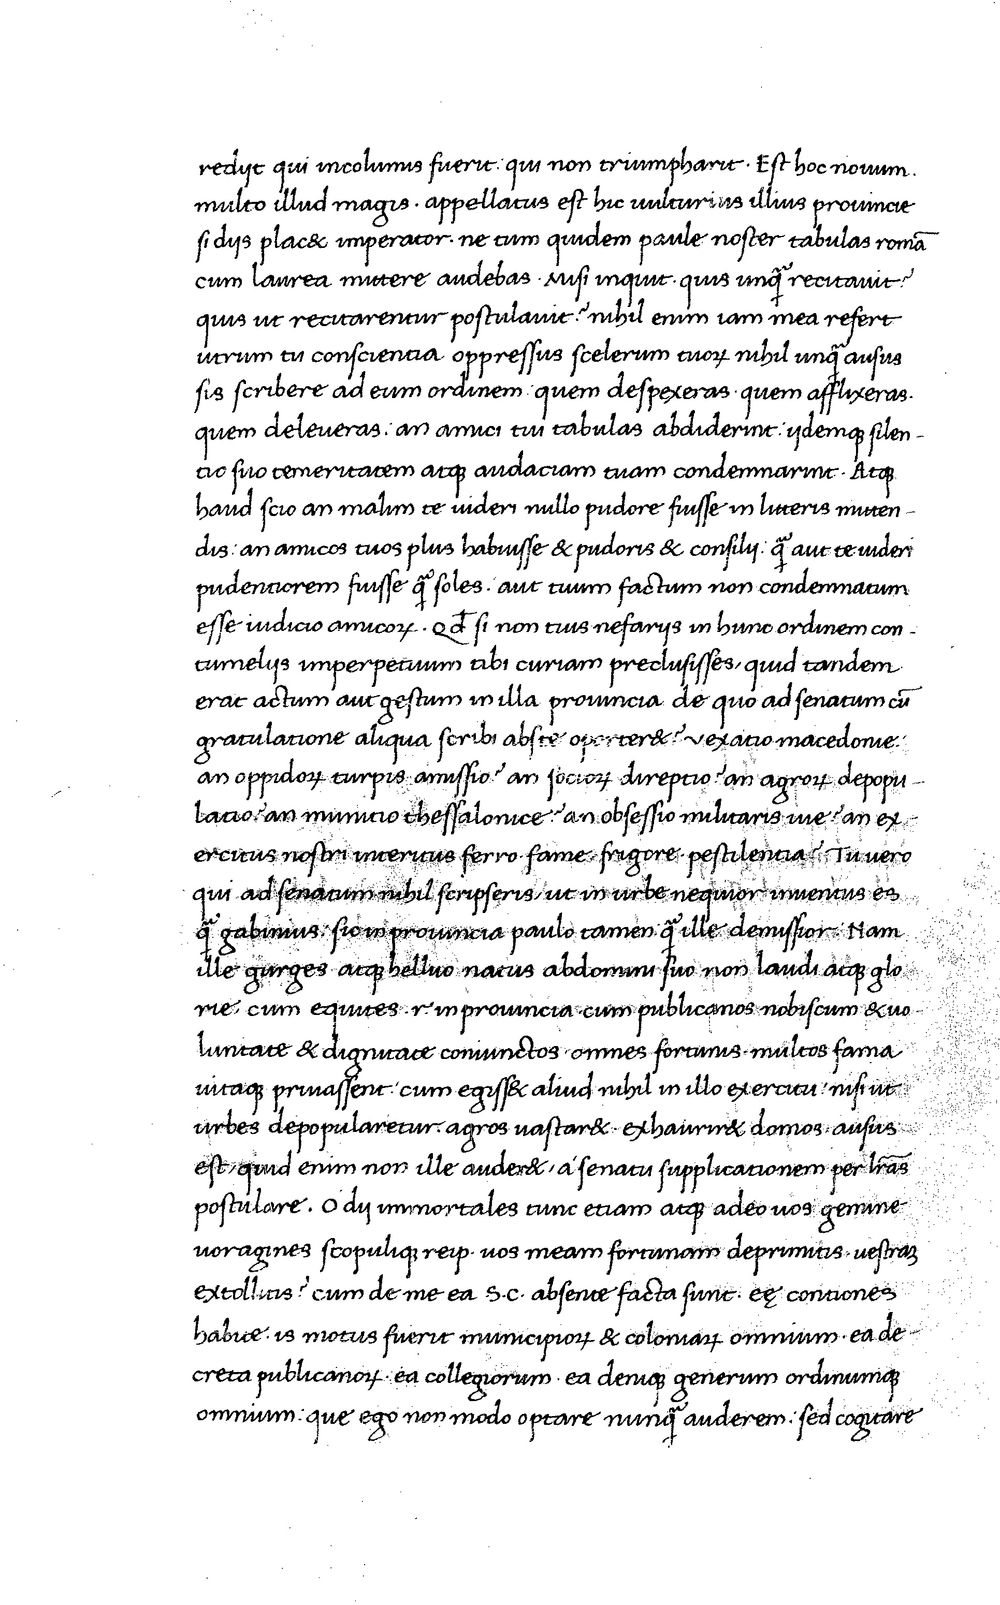 redijt qui incolumis fuerit: qui non triumpharit. Est hoc nouum.
multo illud magis. appellatus est hic uulturius illius prouincie
si dijs plac& imperator. ne tum quidem paule noster tabulas romā
cum laurea mittere audebas. Misi inquit. quis unq̃ recitauit?
quis ut recitarentur postulauit? nihil enim iam mea refert
utrum tu conscientia oppressus scelerum tuoꝝ nihil unq̃ ausus
sis scribere ad eum ordinem: quem despexeras. quem afflixeras.
quem deleueras: an amici tui tabulas abdiderint: ijdemqꝫ silen-
tio suo temeritatem atqꝫ audaciam tuam condemnarint. Atqꝫ
haud scio an malim te uideri nullo pudore fuisse in litteris mitten-
dis: an amicos tuos plus habuisse & pudoris & consilij: q̃ aut te uideri
pudentiorem fuisse q̃ soles. aut tuum factum non condemnatum
esse iudicio amicoꝝ. Qđ si non tuis nefarijs in hunc ordinem con-
tumelijs imperpetuum tibi curiam preclusisses, quid tandem
erat actum aut gestum in illa prouincia de quo ad senatum cū
gratulatione aliqua scribi abste oporter&? vexatio macedonie:
an oppidoꝝ turpis amissio? an socioꝝ direptio? an agroꝝ depopu-
latio? an munitio thessalonice? an obsessio militaris uie? an ex-
ercitus nostri interitus ferro. fame. frigore. pestilentia? Tu uero
qui ad senatum nihil scripseris, ut in urbe nequior inuentus es
q̃ gabinius: sic in prouincia paulo tamen q̃ ille demissior. Nam
ille gurges atqꝫ helluo natus abdomini suo non laudi atqꝫ glo
rie, cum equites .r. in prouincia cum publicanos nobiscum & uo-
luntate & dignitate coniunctos omnes fortunis. multos fama
uitaqꝫ priuassent: cum egiss& aliud nihil in illo exercitu: nisi ut
urbes depopularetur. agros uastar&. exhaurir& domos. ausus
est, quid enim non ille auder&, a senatu supplicationem per lr̃as
postulare. O dij immortales tunc etiam atqꝫ adeo uos gemine
uoragines scopuliqꝫ reip. uos meam fortunam deprimitis. uestraꝫ
extollitis? cum de me ea S.C. absente facta sunt. eę contiones
habite. is motus fuerit municipioꝝ & coloniaꝝ omnium. ea de
creta publicanoꝝ. ea collegiorum. ea deniqꝫ generum ordinumqꝫ
omnium: que ego non modo optare nunq̃ auderem: sed cogitare